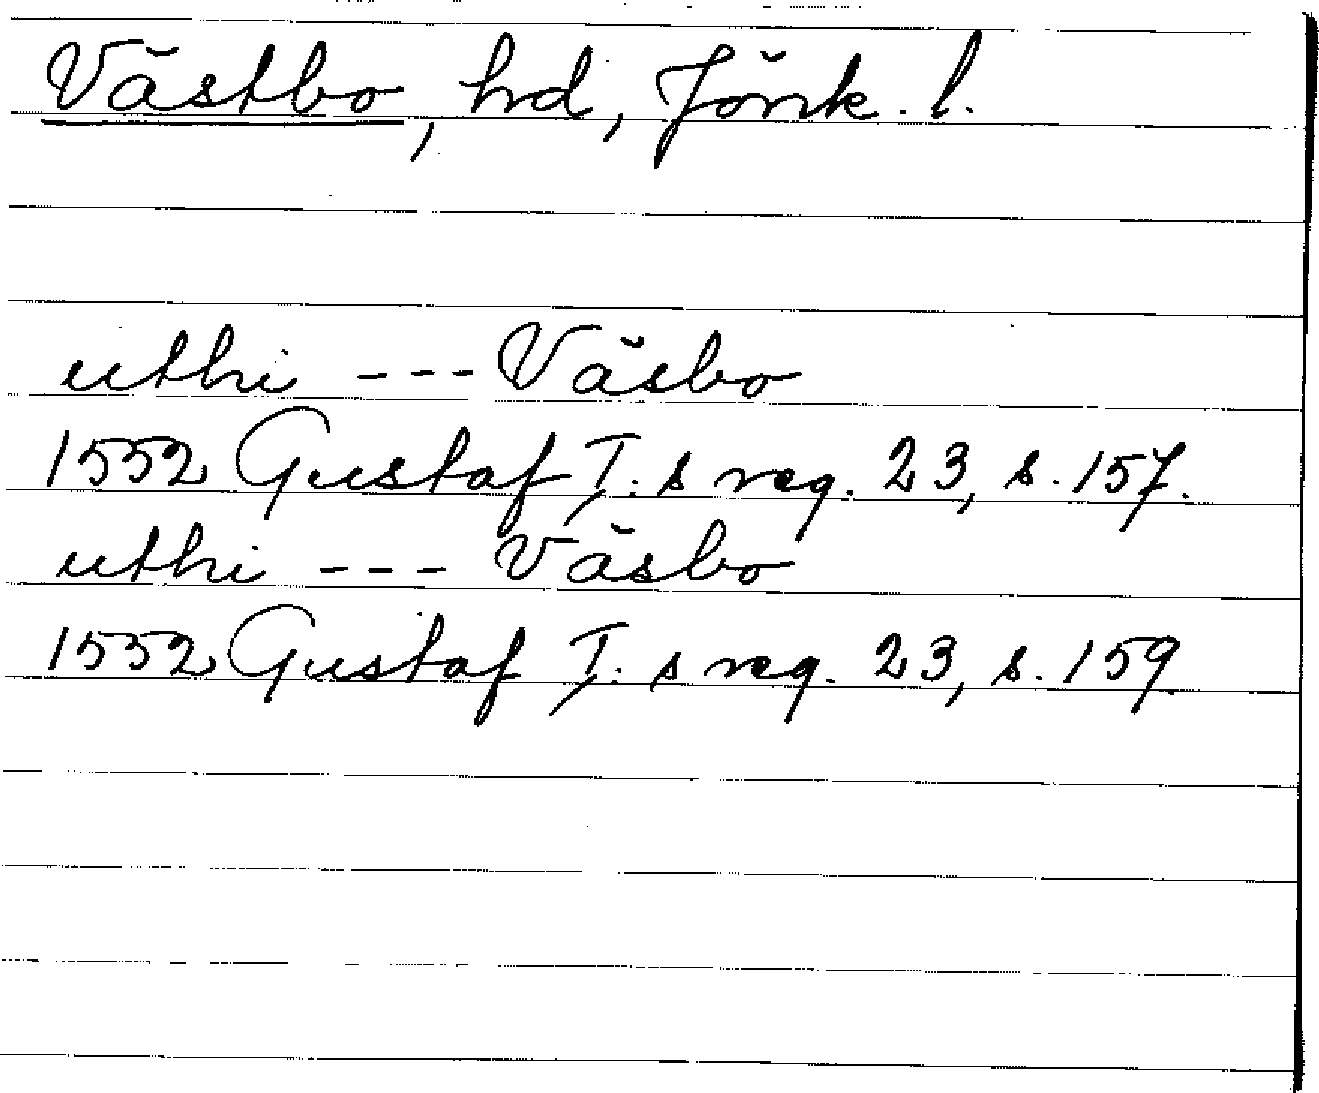 Västbo, hd, Jönk. l.
uthi --- Väsbo
1552 Gustaf I:s reg. 23, s. 157.
uthi --- Väsbo
1552 Gustaf I:s reg. 23, s. 159